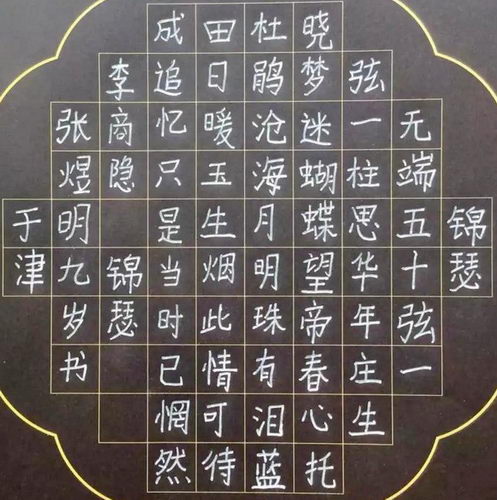 锦瑟
无端五十弦一
弦一柱思华年庄生
晓梦迷蝴蝶望帝春心托
杜鹃沧海月明珠有泪蓝
田日暖玉生烟此情可待
成追忆只是当时已惘然
李商隐 锦瑟
张煜明九岁书
于津